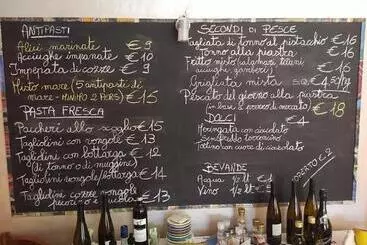 ANTIPASTI
Alici marinate € 9
Acciughe impanate € 10
Impepata di cozze € 9
Misto mare (5 antipasti di
mare - MINIMO 2 PERS) €15
PASTA FRESCA
Paccheri allo scoglio €15
Tagliolini con vongole € 13
Tagliolini con bottarga € 12
(di tonno o di muggine)
Tagliolini vongole/bottarga € 14
Tagliolini cozze vongole
pecorino e rucola € 13
SECONDI DI PESCE
Tagliata di tonno al pistacchio € 16
Tonno alla piastra € 15
Fritto misto (calamari, totani
acciughe, gamberi) € 16
Grigliata mista
Pescato del giorno alla piastra
(in base a prezzo di mercato) € 18
DOLCI € 4
Meringata con cioccolato
Semifreddo torroncino
Tortino con cuore di cioccolato
BEVANDE
Acqua 1/2 lt €1
Vino 1/2 lt
COPERTO € 2